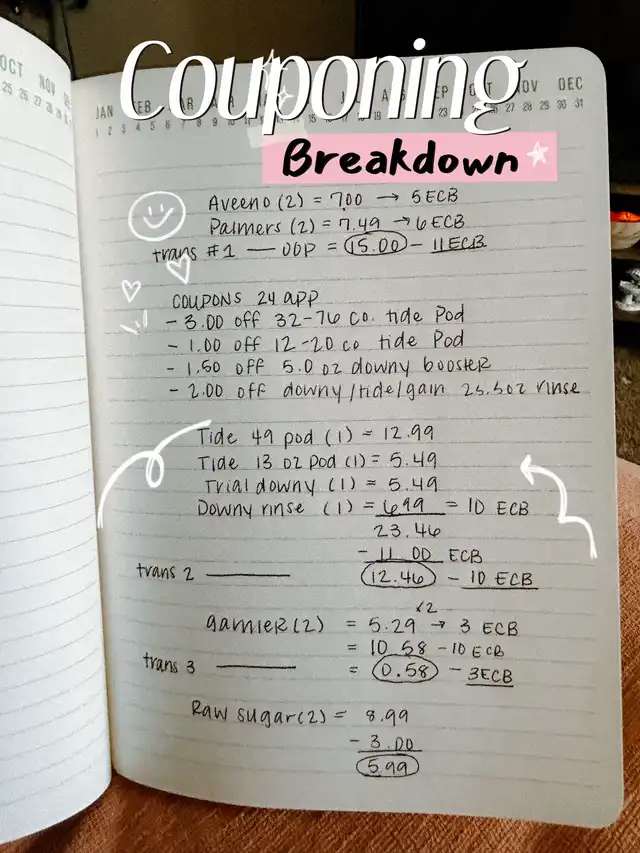 Couponing
Breakdown
OCT NOV
25 26 27 28
JAN FEB MAR APR JUL AUG SEP OCT NOV DEC
1 2 3 4 5 6 7 8 9 10 11 12 13 27 28 29 30 31
Aveeno (2) = 7.00 → 5 ECB
Palmers (2) = 7.49 → 6 ECB
trans #1 — OOP = 15.00 - 11 ECB
COUPONS 24 app
- 3.00 off 32-76 co. tide Pod
- 1.00 off 12-20 co tide Pod
- 1.50 off 5.0 oz downy booster
- 2.00 off downy/tide/gain 25.5oz rinse
Tide 49 pod (1) = 12.99
Tide 13 oz pod (1) = 5.49
Trial downy (1) = 5.49
Downy rinse (1) = 6.99 = 10 ECB
23.46
- 11.00 ECB
trans 2 — 12.46 - 10 ECB
x2
garnier (2) = 5.29 → 3 ECB
= 10.58 - 10 ECB
trans 3 — = 0.58 - 3 ECB
Raw sugar (2) = 8.99
- 3.00
5.99